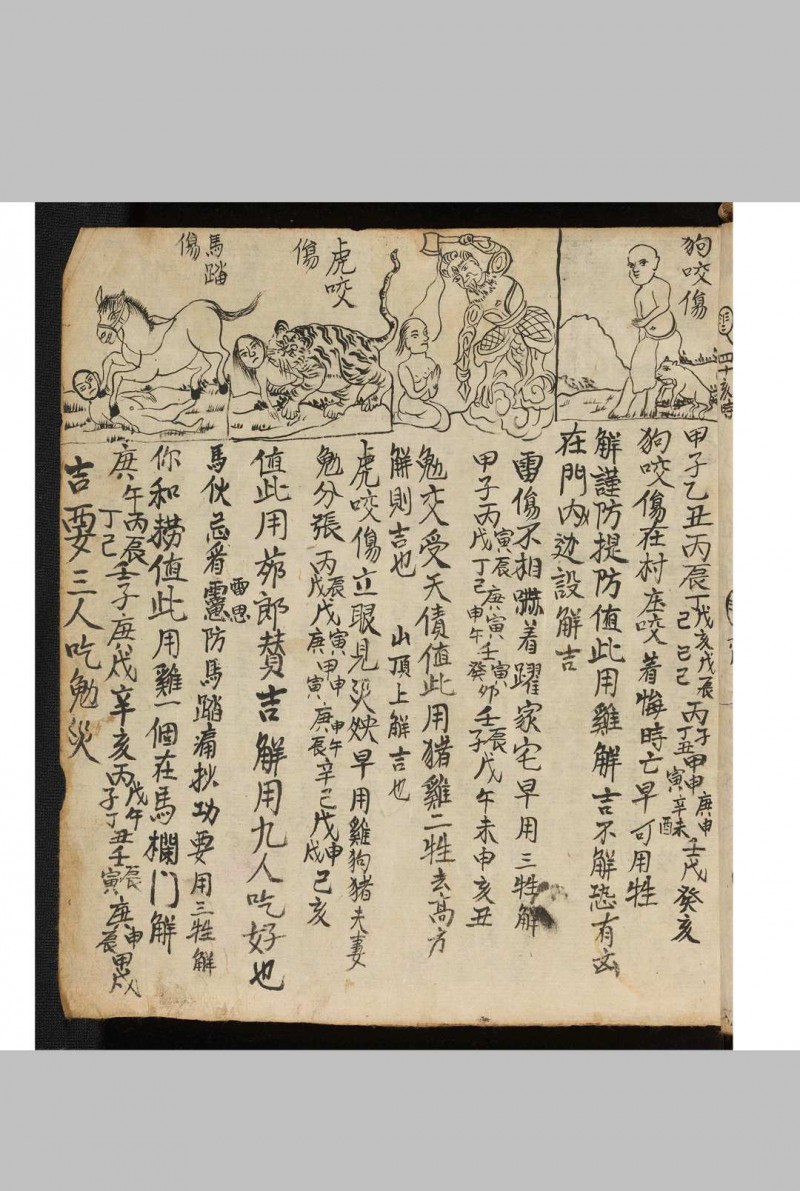 狗咬傷
甲子乙丑丙辰丁己戊亥己戊辰己丙子丁丑甲申寅辛未庚申酉壬戌癸亥
狗咬傷在村庄咬着悔時亡早可用牲
解謹防提防值此用雞解吉不解恐有
在門内边設解吉
雷傷不相 着躍家宅早用三牲解
甲子丙戌寅辰丁己庚寅申午壬寅癸卯壬子辰戊午未申亥丑
勉交受天債值此用猪雞二牲去高方
解則吉也 山頂上解吉也
虎咬傷
虎咬傷立眼見災殃早用雞狗猪夫妻
勉分張丙戌辰戊庚寅甲寅申庚辰甲午辛己戊戌申己亥
值此用茆郎賛吉解用九人吃好也
馬踏傷
馬伏忌看 雷思防馬踏痛扒功要用三牲解
你和撈值此用雞一個在馬欄门解
庚午丁己丙辰壬子庚戌辛亥丙子戊午丁丑壬寅辰庚辰申甲戌
吉要三人吃勉災
四十亥時